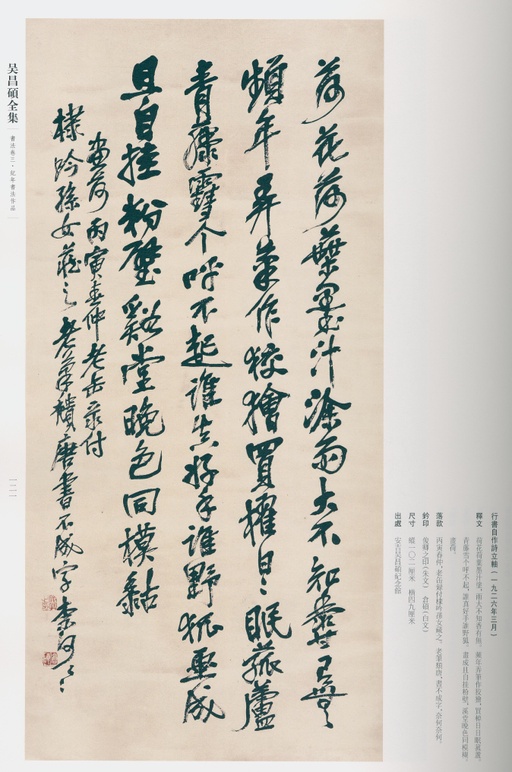 荷花荷葉墨汁塗雨大不知香有無
頻年弄筆作狡獪買櫂日日眠菰蘆
青藤雪个呼不起誰真好手誰野狐
畫成且自挂粉壁谿堂晚色同模黏
畫荷丙寅春仲老缶錄付
棣吟孫女藏之老筆穨唐書不成字奈何奈何
行書自作詩立軸（一九二六年三月）
釋文
荷花荷葉墨汁塗，雨大不知香有無。頻年弄筆作狡獪，買櫂日日眠菰蘆。
青藤雪个呼不起，誰真好手誰野狐。畫成且自挂粉壁，溪堂晚色同模糊。
畫荷。
落款
丙寅春仲，老缶錄付棣吟孫女藏之。老筆頹唐，書不成字，奈何奈何。
鈐印
俊卿之印（朱文） 倉碩（白文）
尺寸
縱一〇二厘米 橫四九厘米
出處
安吉吳昌碩紀念館
吴昌碩全集
書法卷三·紀年書法作品
一二一